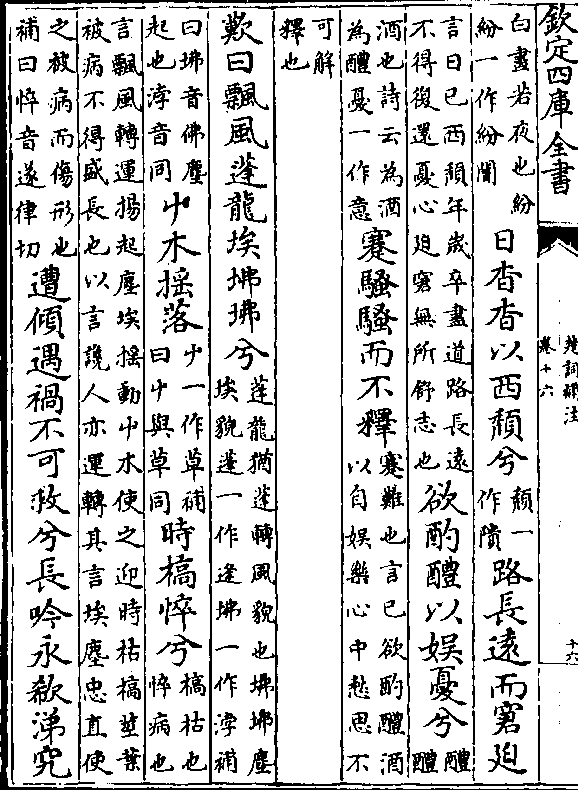 欽定四庫全書
楚詞補注
卷十六
十六
白盡若夜也紛
紛一作紛闇
日杳杳以西頽兮
頽一
作隤
路長遠而窘迫
言日已西頽年歲卒盡道路長遠
不得復還憂心迫窘無所舒志也
欲酌醴以娛憂兮
醴
醴
酒也詩云為酒
為醴憂一作意
蹇騷騷而不釋
蹇難也言已欲酌醴酒
以自娛樂心中愁思不
可解
釋也
歎曰飄風蓬龍埃坲坲兮
蓬龍猶蓬轉風貌也坲坲塵
埃貌蓬一作逢坲一作浡補
曰坲音佛塵
起也浡音同
屮木搖落
屮一作草補
曰屮與草同
時槁悴兮
槁枯也
悴病也
言飄風轉運揚起塵埃搖動屮木使之迎時枯槁莖葉
被病不得盛長也以言讒人亦運轉其言埃塵忠直使
之被病而傷形也
補曰悴音遂律切
遭傾遇禍不可救兮長吟永欷涕究